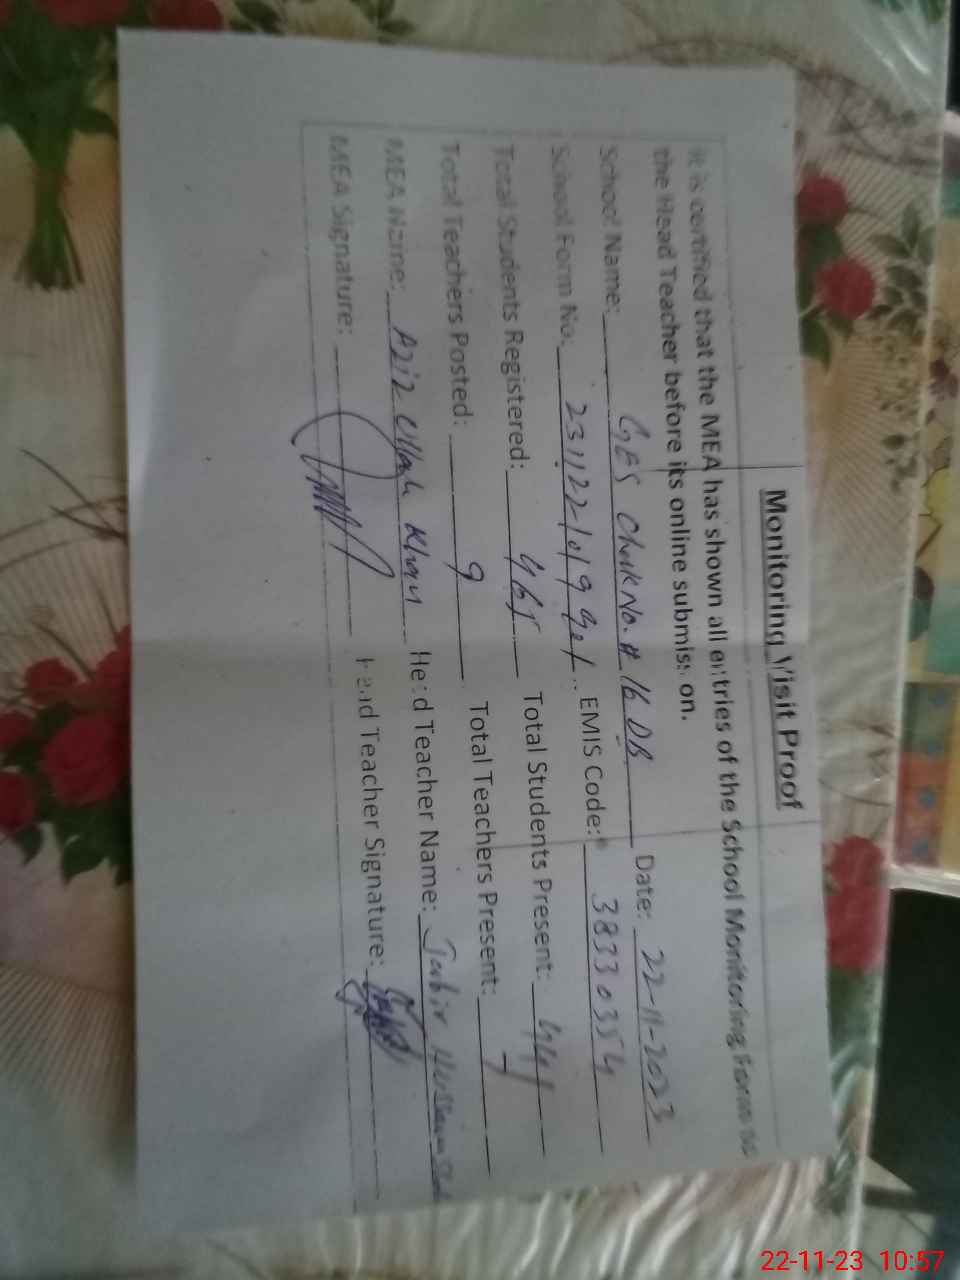 Monitoring Visit Proof
It is certified that the MEA has shown all entries of the School Monitoring Form to
the Head Teacher before its online submission.
School Name: GES Chak No. # 16 DB Date: 22-11-2023
School Form No: EMIS Code: 38330354
Total Students Registered: 465 Total Students Present: 441
Total Teachers Posted: 9 Total Teachers Present: 7
MEA Name: Aziz Ullah Khan Head Teacher Name: Hussain
MEA Signature: Head Teacher Signature:
22-11-23 10:57